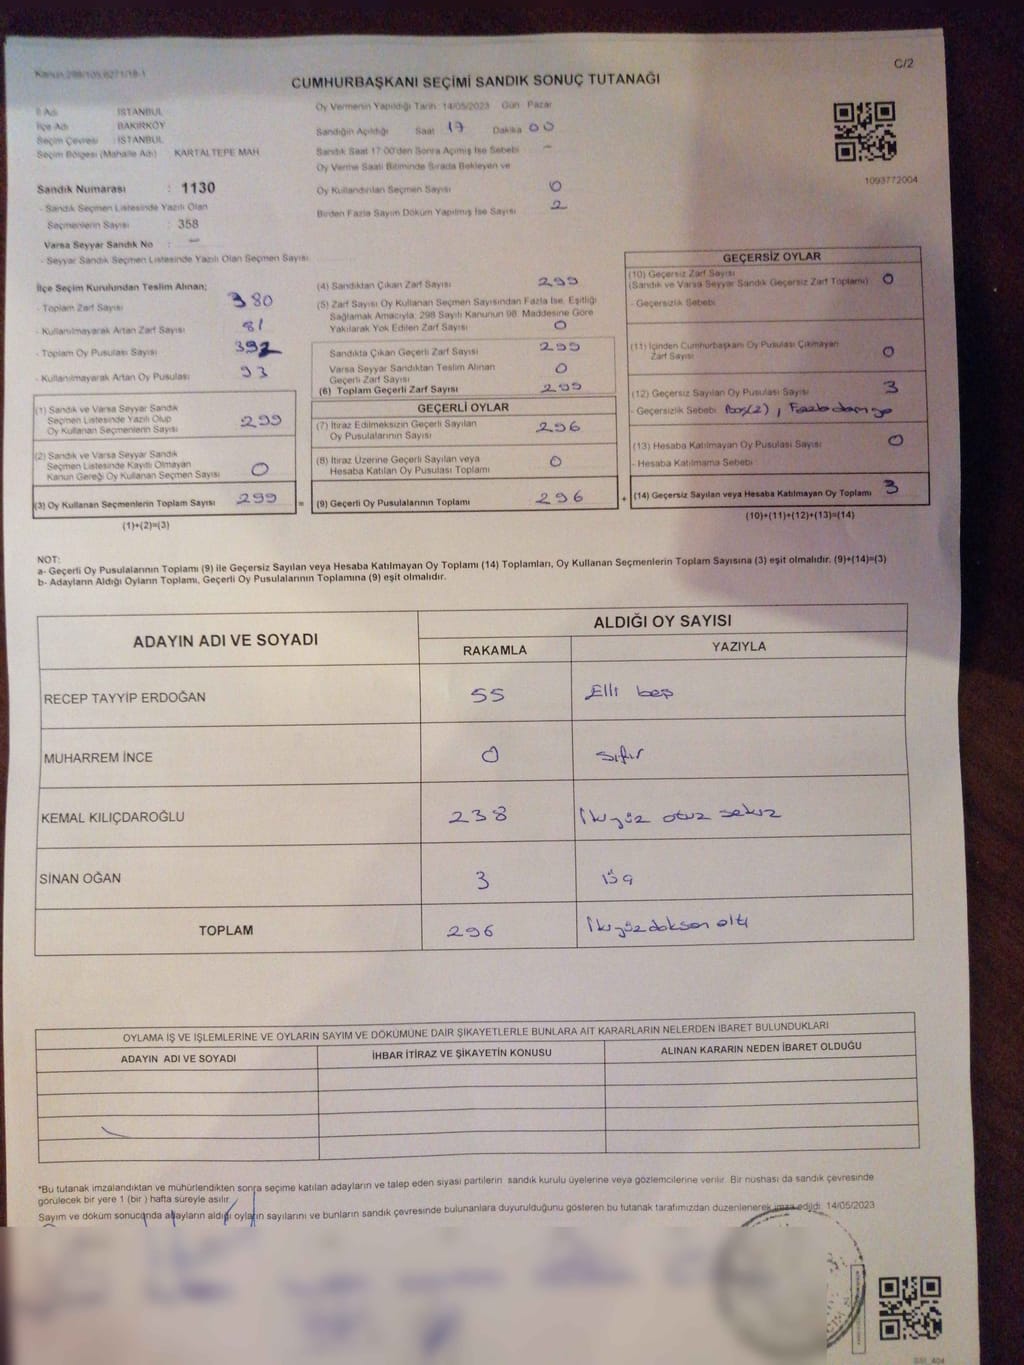 Kanun 298/105,6271/18-1
C/2
CUMHURBAŞKANI SEÇİMİ SANDIK SONUÇ TUTANAĞI
İl Adı İSTANBUL
İlçe Adı BAKIRKÖY
Seçim Çevresi : İSTANBUL
Seçim Bölgesi (Mahalle Adı) KARTALTEPE MAH
Sandık Numarası : 1130
- Sandık Seçmen Listesinde Yazılı Olan
Seçmenlerin Sayısı : 358
Varsa Seyyar Sandık No : -
- Seyyar Sandık Seçmen Listesinde Yazılı Olan Seçmen Sayısı
Oy Vermenin Yapıldığı Tarih: 14/05/2023 Gün Pazar
Sandığın Açıldığı Saat 17 Dakika 00
Sandık Saat 17:00'den Sonra Açılmış İse Sebebi -
Oy Verme Saati Bitiminde Sırada Bekleyen ve
Oy Kullandırılan Seçmen Sayısı 0
Birden Fazla Sayım Döküm Yapılmış İse Sayısı 2
1093772004
İlçe Seçim Kurulundan Teslim Alınan;
- Toplam Zarf Sayısı 380
- Kullanılmayarak Artan Zarf Sayısı 81
- Toplam Oy Pusulası Sayısı 392
- Kullanılmayarak Artan Oy Pusulası 93
(1) Sandık ve Varsa Seyyar Sandık
Seçmen Listesinde Yazılı Olup
Oy Kullanan Seçmenlerin Sayısı 299
(2) Sandık ve Varsa Seyyar Sandık
Seçmen Listesinde Kayıtlı Olmayan
Kanun Gereği Oy Kullanan Seçmen Sayısı 0
(3) Oy Kullanan Seçmenlerin Toplam Sayısı 299 =
(1)+(2)=(3)
(4) Sandıktan Çıkan Zarf Sayısı 299
(5) Zarf Sayısı Oy Kullanan Seçmen Sayısından Fazla İse, Eşitliği
Sağlamak Amacıyla, 298 Sayılı Kanunun 98. Maddesine Göre
Yakılarak Yok Edilen Zarf Sayısı 0
Sandıkta Çıkan Geçerli Zarf Sayısı 299
Varsa Seyyar Sandıktan Teslim Alınan
Geçerli Zarf Sayısı 0
(6) Toplam Geçerli Zarf Sayısı 299
GEÇERLİ OYLAR
(7) İtiraz Edilmeksizin Geçerli Sayılan
Oy Pusulalarının Sayısı 296
(8) İtiraz Üzerine Geçerli Sayılan veya
Hesaba Katılan Oy Pusulası Toplamı 0
(9) Geçerli Oy Pusulalarının Toplamı 296 +
GEÇERSİZ OYLAR
(10) Geçersiz Zarf Sayısı
(Sandık ve Varsa Seyyar Sandık Geçersiz Zarf Toplamı) 0
- Geçersizlik Sebebi
(11) İçinden Cumhurbaşkanı Oy Pusulası Çıkmayan
Zarf Sayısı 0
(12) Geçersiz Sayılan Oy Pusulası Sayısı 3
- Geçersizlik Sebebi Boş(2),
(13) Hesaba Katılmayan Oy Pusulası Sayısı 0
- Hesaba Katılmama Sebebi
(14) Geçersiz Sayılan veya Hesaba Katılmayan Oy Toplamı 3
(10)+(11)+(12)+(13)=(14)
NOT:
a- Geçerli Oy Pusulalarının Toplamı (9) ile Geçersiz Sayılan veya Hesaba Katılmayan Oy Toplamı (14) Toplamları, Oy Kullanan Seçmenlerin Toplam Sayısına (3) eşit olmalıdır. (9)+(14)=(3)
b- Adayların Aldığı Oyların Toplamı, Geçerli Oy Pusulalarının Toplamına (9) eşit olmalıdır.
ADAYIN ADI VE SOYADI
ALDIĞI OY SAYISI
RAKAMLA YAZIYLA
RECEP TAYYİP ERDOĞAN 55 Elli beş
MUHARREM İNCE 0 sıfır
KEMAL KILIÇDAROĞLU 238 İkiyüz otuz sekiz
SİNAN OĞAN 3 üç
TOPLAM 296 İkiyüzdoksan altı
OYLAMA İŞ VE İŞLEMLERİNE VE OYLARIN SAYIM VE DÖKÜMÜNE DAİR ŞİKAYETLERLE BUNLARA AİT KARARLARIN NELERDEN İBARET BULUNDUKLARI
ADAYIN ADI VE SOYADI İHBAR İTİRAZ VE ŞİKAYETİN KONUSU ALINAN KARARIN NEDEN İBARET OLDUĞU
*Bu tutanak imzalandıktan ve mühürlendikten sonra seçime katılan adayların ve talep eden siyasi partilerin sandık kurulu üyelerine veya gözlemcilerine verilir. Bir nüshası da sandık çevresinde
görülecek bir yere 1 (bir ) hafta süreyle asılır.
Sayım ve döküm sonucunda adayların aldığı oyların sayılarını ve bunların sandık çevresinde bulunanlara duyurulduğunu gösteren bu tutanak tarafımızdan düzenlenerek imza edildi. 14/05/2023